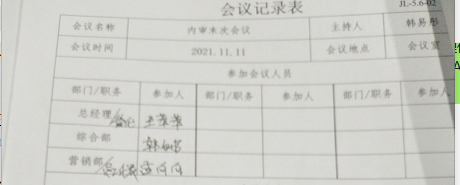 会议记录表
JL-5.6-02
会议名称 内审末次会议 主持人 韩易彤
会议时间 2021.11.11 会议地点 会议室
参加会议人员
部门/职务 参加人 部门/职务 参加人 部门/职务 参加人
总经理
综合部
营销部